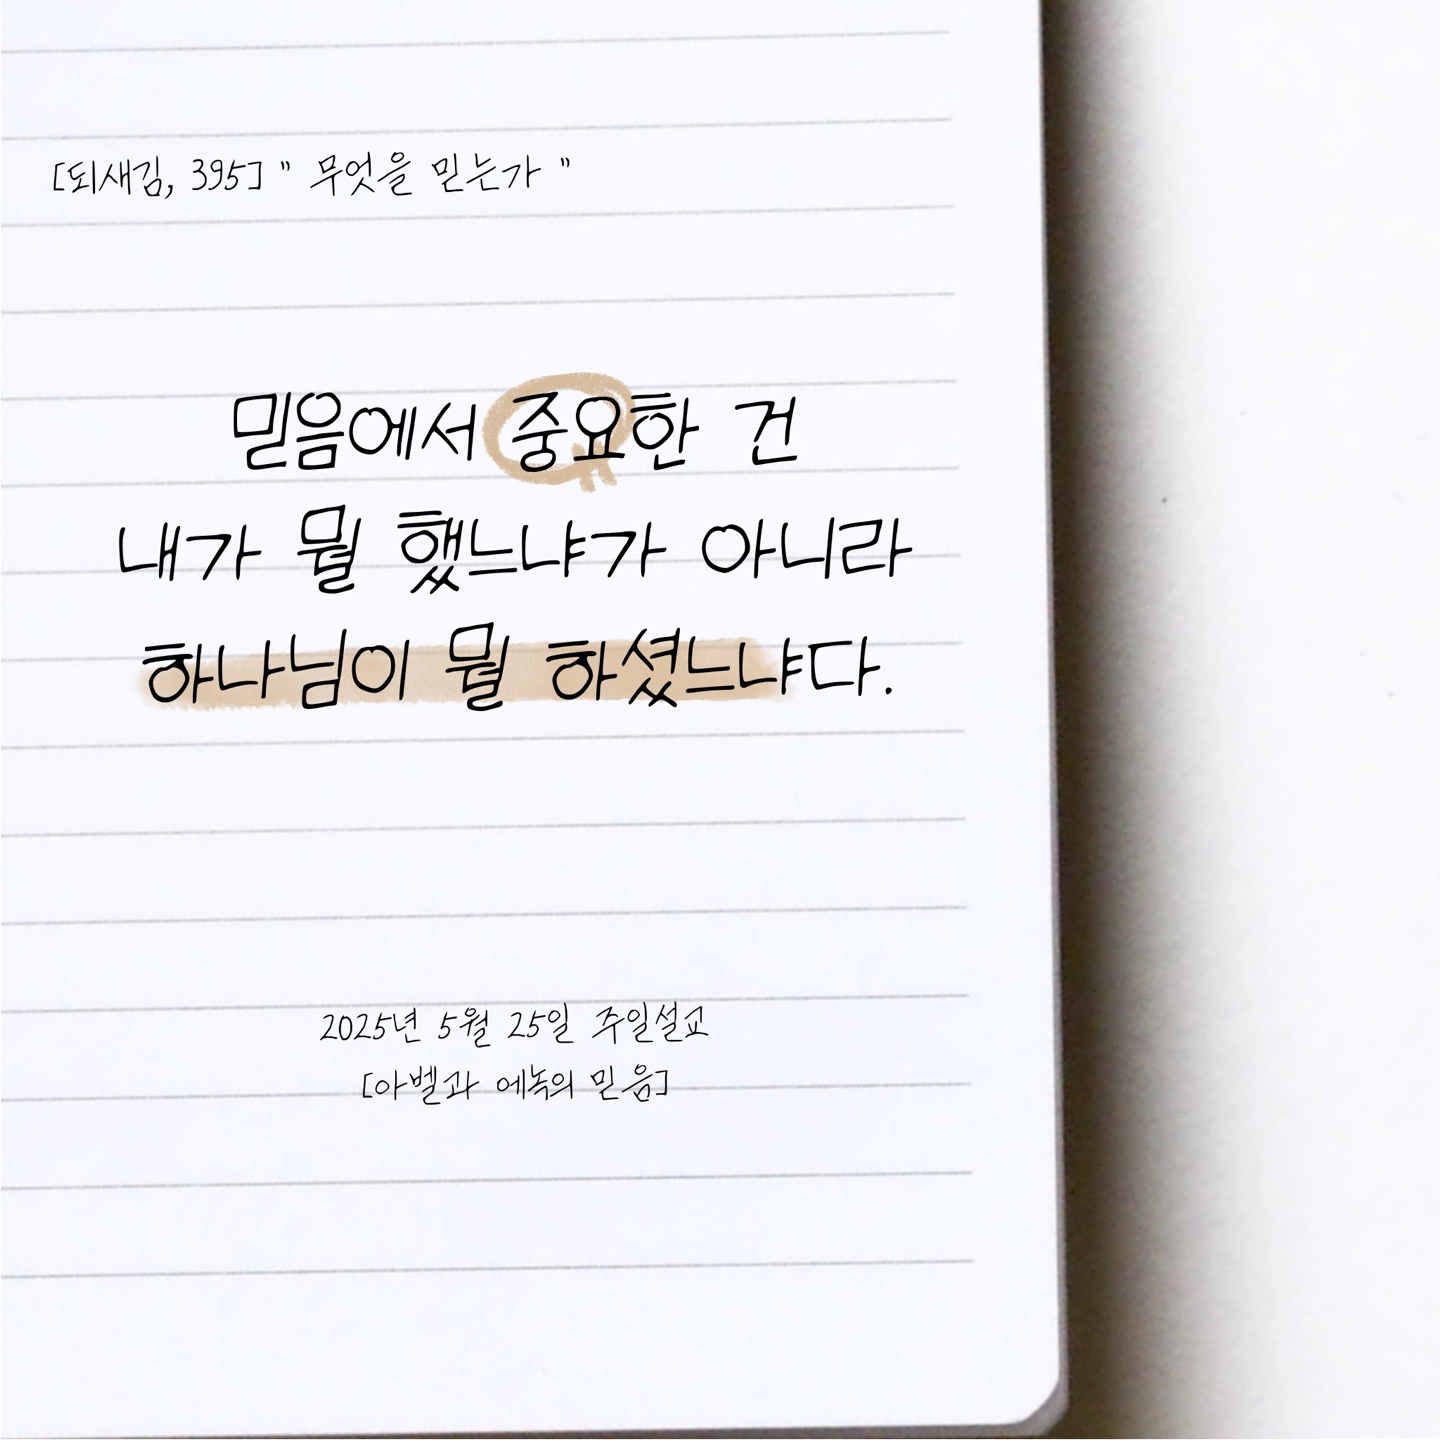 [되새김, 395] " 무엇을 믿는가 "
믿음에서 중요한 건
내가 뭘 했느냐가 아니라
하나님이 뭘 하셨느냐다.
2025년 5월 25일 주일설교
[아벨과 에녹의 믿음]